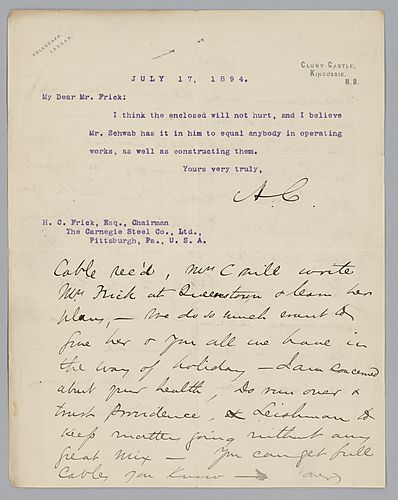 TELEGRAMS,
LAGGAN.
CLUNY CASTLE,
KINGUSSIE,
N.B.
JULY 17, 1894.
My Dear Mr. Frick:
I think the enclosed will not hurt, and I believe
Mr. Schwab has it in him to equal anybody in operating
works, as well as constructing them.
Yours very truly,
A.C.
H. C. Frick, Esq., Chairman
The Carnegie Steel Co., Ltd.,
Pittsburgh, Pa., U. S. A.
Cable rec'd, Mrs C will write
Mrs Frick at Queenstown & learn her
plans, — We do so much want to
give her & you all we have in
the way of holiday — I am concerned
about your health, Do run over &
trust Providence, & Leishman to
keep matters going without any
great mix — You can get full
Cables you know —
over